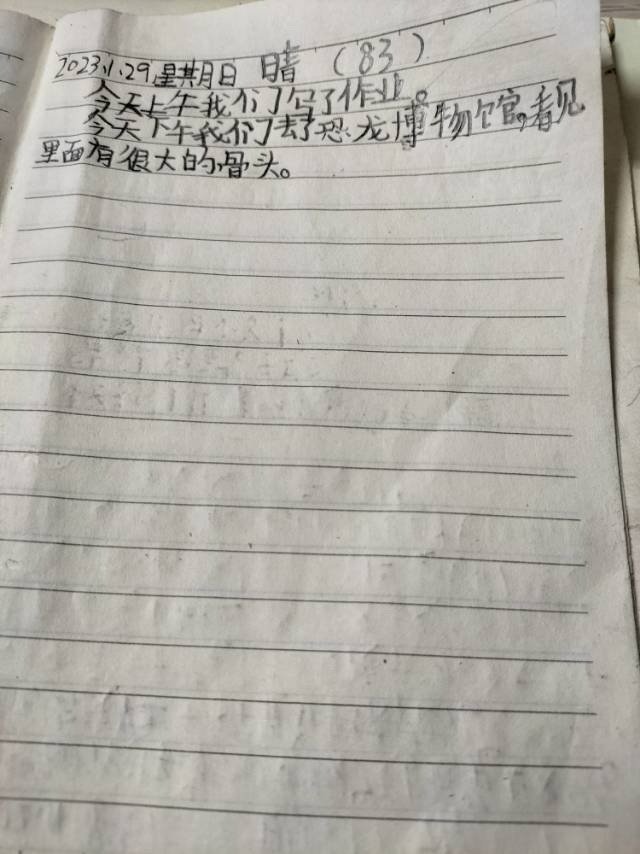 2023.1.29星期日 晴 (83)
今天上午我们写了作业。
今天下午我们去了恐龙博物馆,看见
里面有很大的骨头。